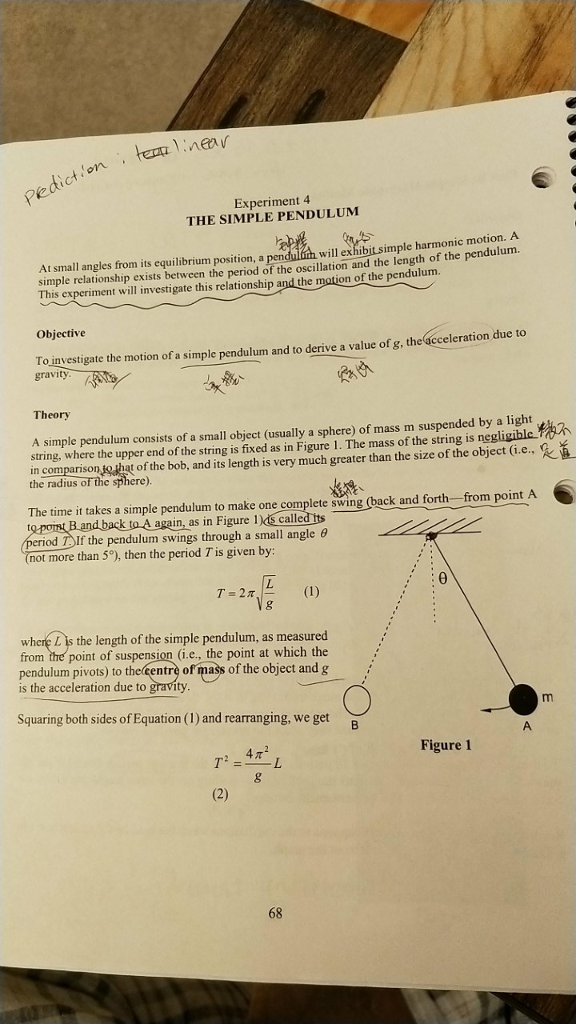 prediction : linear
Experiment 4
THE SIMPLE PENDULUM
At small angles from its equilibrium position, a pendulum will exhibit simple harmonic motion. A
simple relationship exists between the period of the oscillation and the length of the pendulum.
This experiment will investigate this relationship and the motion of the pendulum.
Objective
To investigate the motion of a simple pendulum and to derive a value of g, the acceleration due to
gravity.
Theory
A simple pendulum consists of a small object (usually a sphere) of mass m suspended by a light
string, where the upper end of the string is fixed as in Figure 1. The mass of the string is negligible
in comparison to that of the bob, and its length is very much greater than the size of the object (i.e.,
the radius of the sphere).
The time it takes a simple pendulum to make one complete swing (back and forth—from point A
to point B and back to A again, as in Figure 1) is called its
period T. If the pendulum swings through a small angle θ
(not more than 5°), then the period T is given by:
T = 2π√(L/g) (1)
where L is the length of the simple pendulum, as measured
from the point of suspension (i.e., the point at which the
pendulum pivots) to the centre of mass of the object and g
is the acceleration due to gravity.
Squaring both sides of Equation (1) and rearranging, we get
T² = 4π²/g L
(2)
θ
m
B
A
Figure 1
68